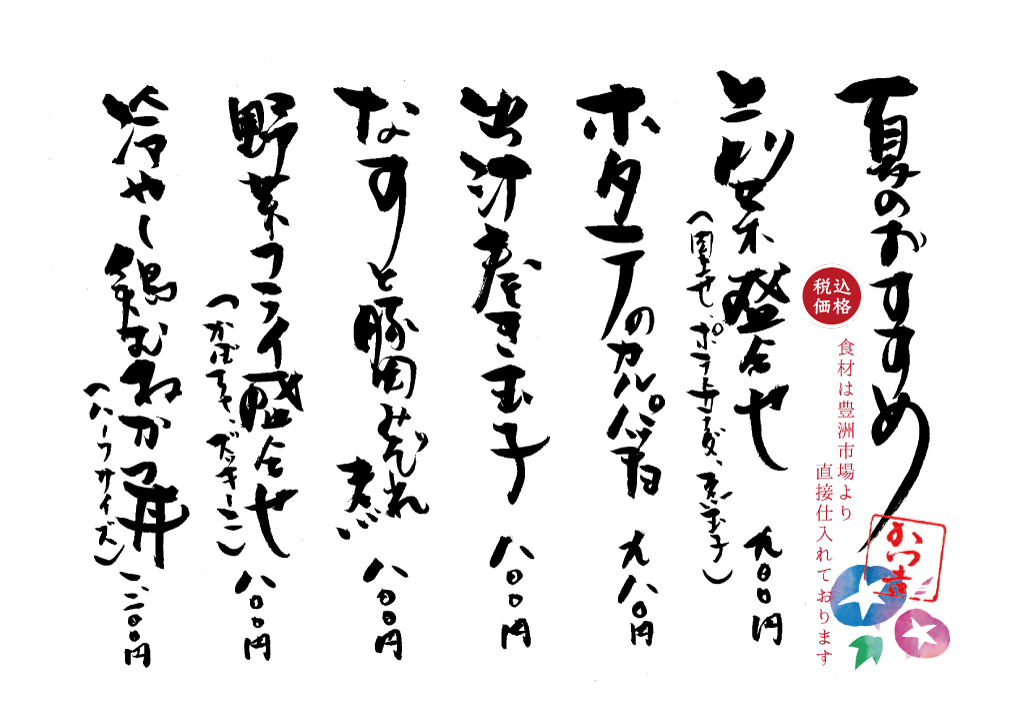 夏のおすすめ
かつ吉
税込
価格
食材は豊洲市場より
直接仕入れております
前菜盛合せ 九〇〇円
ポテトサラダ、煮玉子）
ホタテのカルパッチョ 九八〇円
出汁巻き玉子 八〇〇円
なすと豚肉みぞれ煮 八〇〇円
野菜フライ盛合せ 八〇〇円
（かぼちゃ、ズッキーニ）
冷やし鶏むねかつ丼 一二〇〇円
（ハーフサイズ）